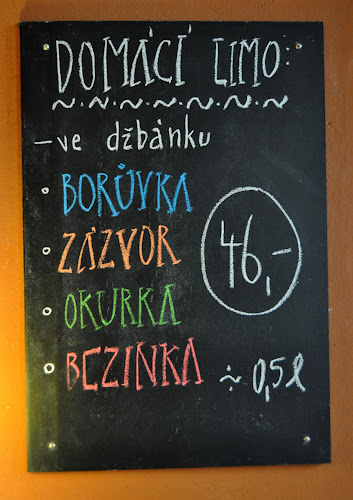 DOMÁCÍ LIMO:
- ve džbánku
BORŮVKA
ZÁZVOR
46,-
OKURKA
BEZINKA
÷ 0,5l